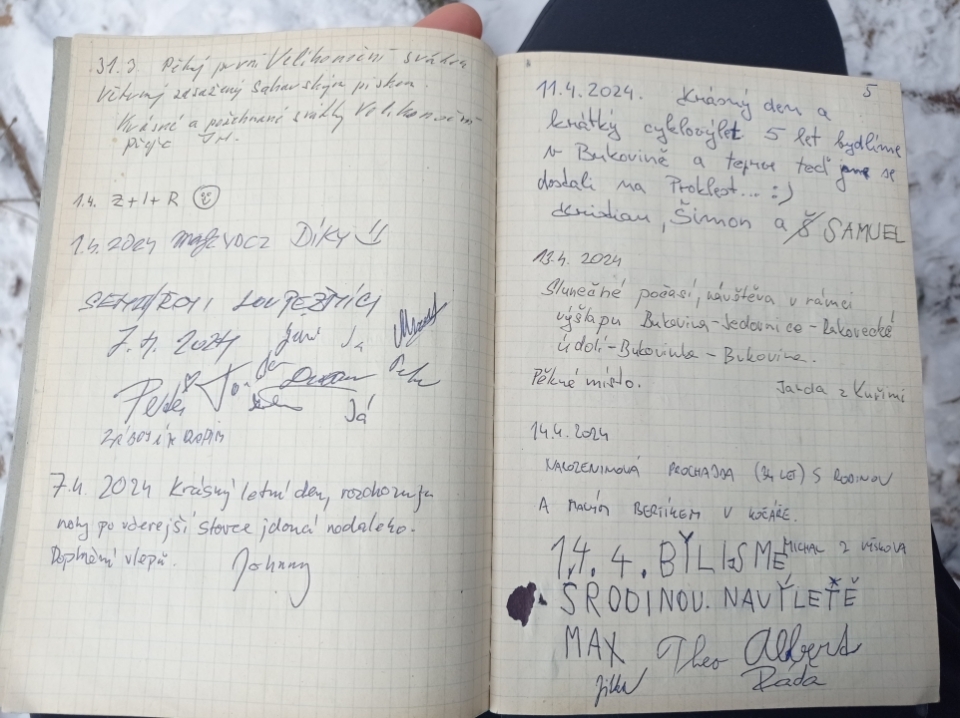 31.3. Pěkný první Velikonoční svátek
Větrný zasažený Saharským pískem.
Krásné a požehnané svátky Velikonoční
přeje
1.4. Z+I+R
1.4.2024 DÍKY
LOUPEŽNÍCI
7.4. 2024 Já
Peter
Já
7.4. 2024 Krásný letní den,
nohy po včerejší stovce
Doplnění vlepů. Johnny
5
11.4.2024. Krásný den a
krátký cyklovýlet 5 let bydlíme
v Bukovině a teprve teď jsme se
dostali na Proklest... :)
Kristian, Šimon a SAMUEL
13.4. 2024
Slunečné počasí, návštěva v rámci
výšlapu Bukovina-Jedovnice-Rakovecké
údolí-Bukovinka-Bukovina.
Pěkné místo. Jarda z Kuřimi
14.4.2024
NAROZENINOVÁ PROCHAJDA (34 LET) S RODINOU
A MALÝM BERTÍKEM V KOČÁŘE.
MICHAL Z VYŠKOVA
14. 4. BÝLI JSME
ŠRODINOU. NAVÝLEŤĚ
MAX Theo Albert
Jitka Ráďa